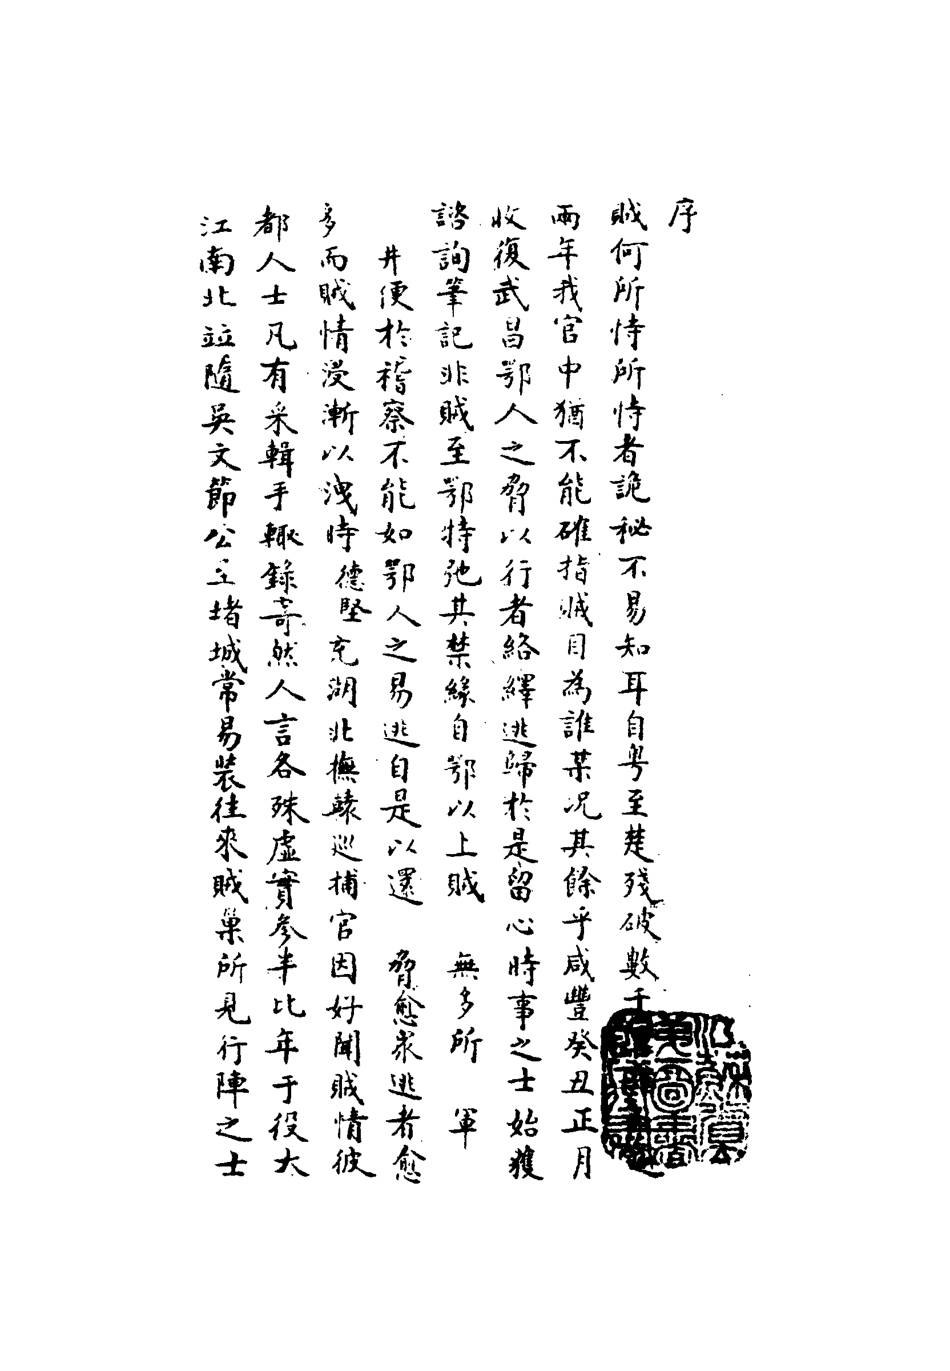 序
賊何所恃所恃者詭秘不易知耳自粤至楚殘破數千
兩年我官中猶不能確指賊目為誰某况其餘乎咸豐癸丑正月
收復武昌鄂人之脅以行者絡繹逃歸於是留心時事之士始獲
諮詢筆記非賊至鄂特弛其禁緣自鄂以上賊 無多所 軍
井便於稽察不能如鄂人之易逃自是以還 脅愈衆逃者愈
多而賊情浸漸以洩時德堅充湖北撫轅巡捕官因好聞賊情彼
都人士凡有采輯手輙錄寄然人言各殊虛實參半比年于役大
江南北並隨吳文節公至堵城常易裝往來賊巢所見行陣之士